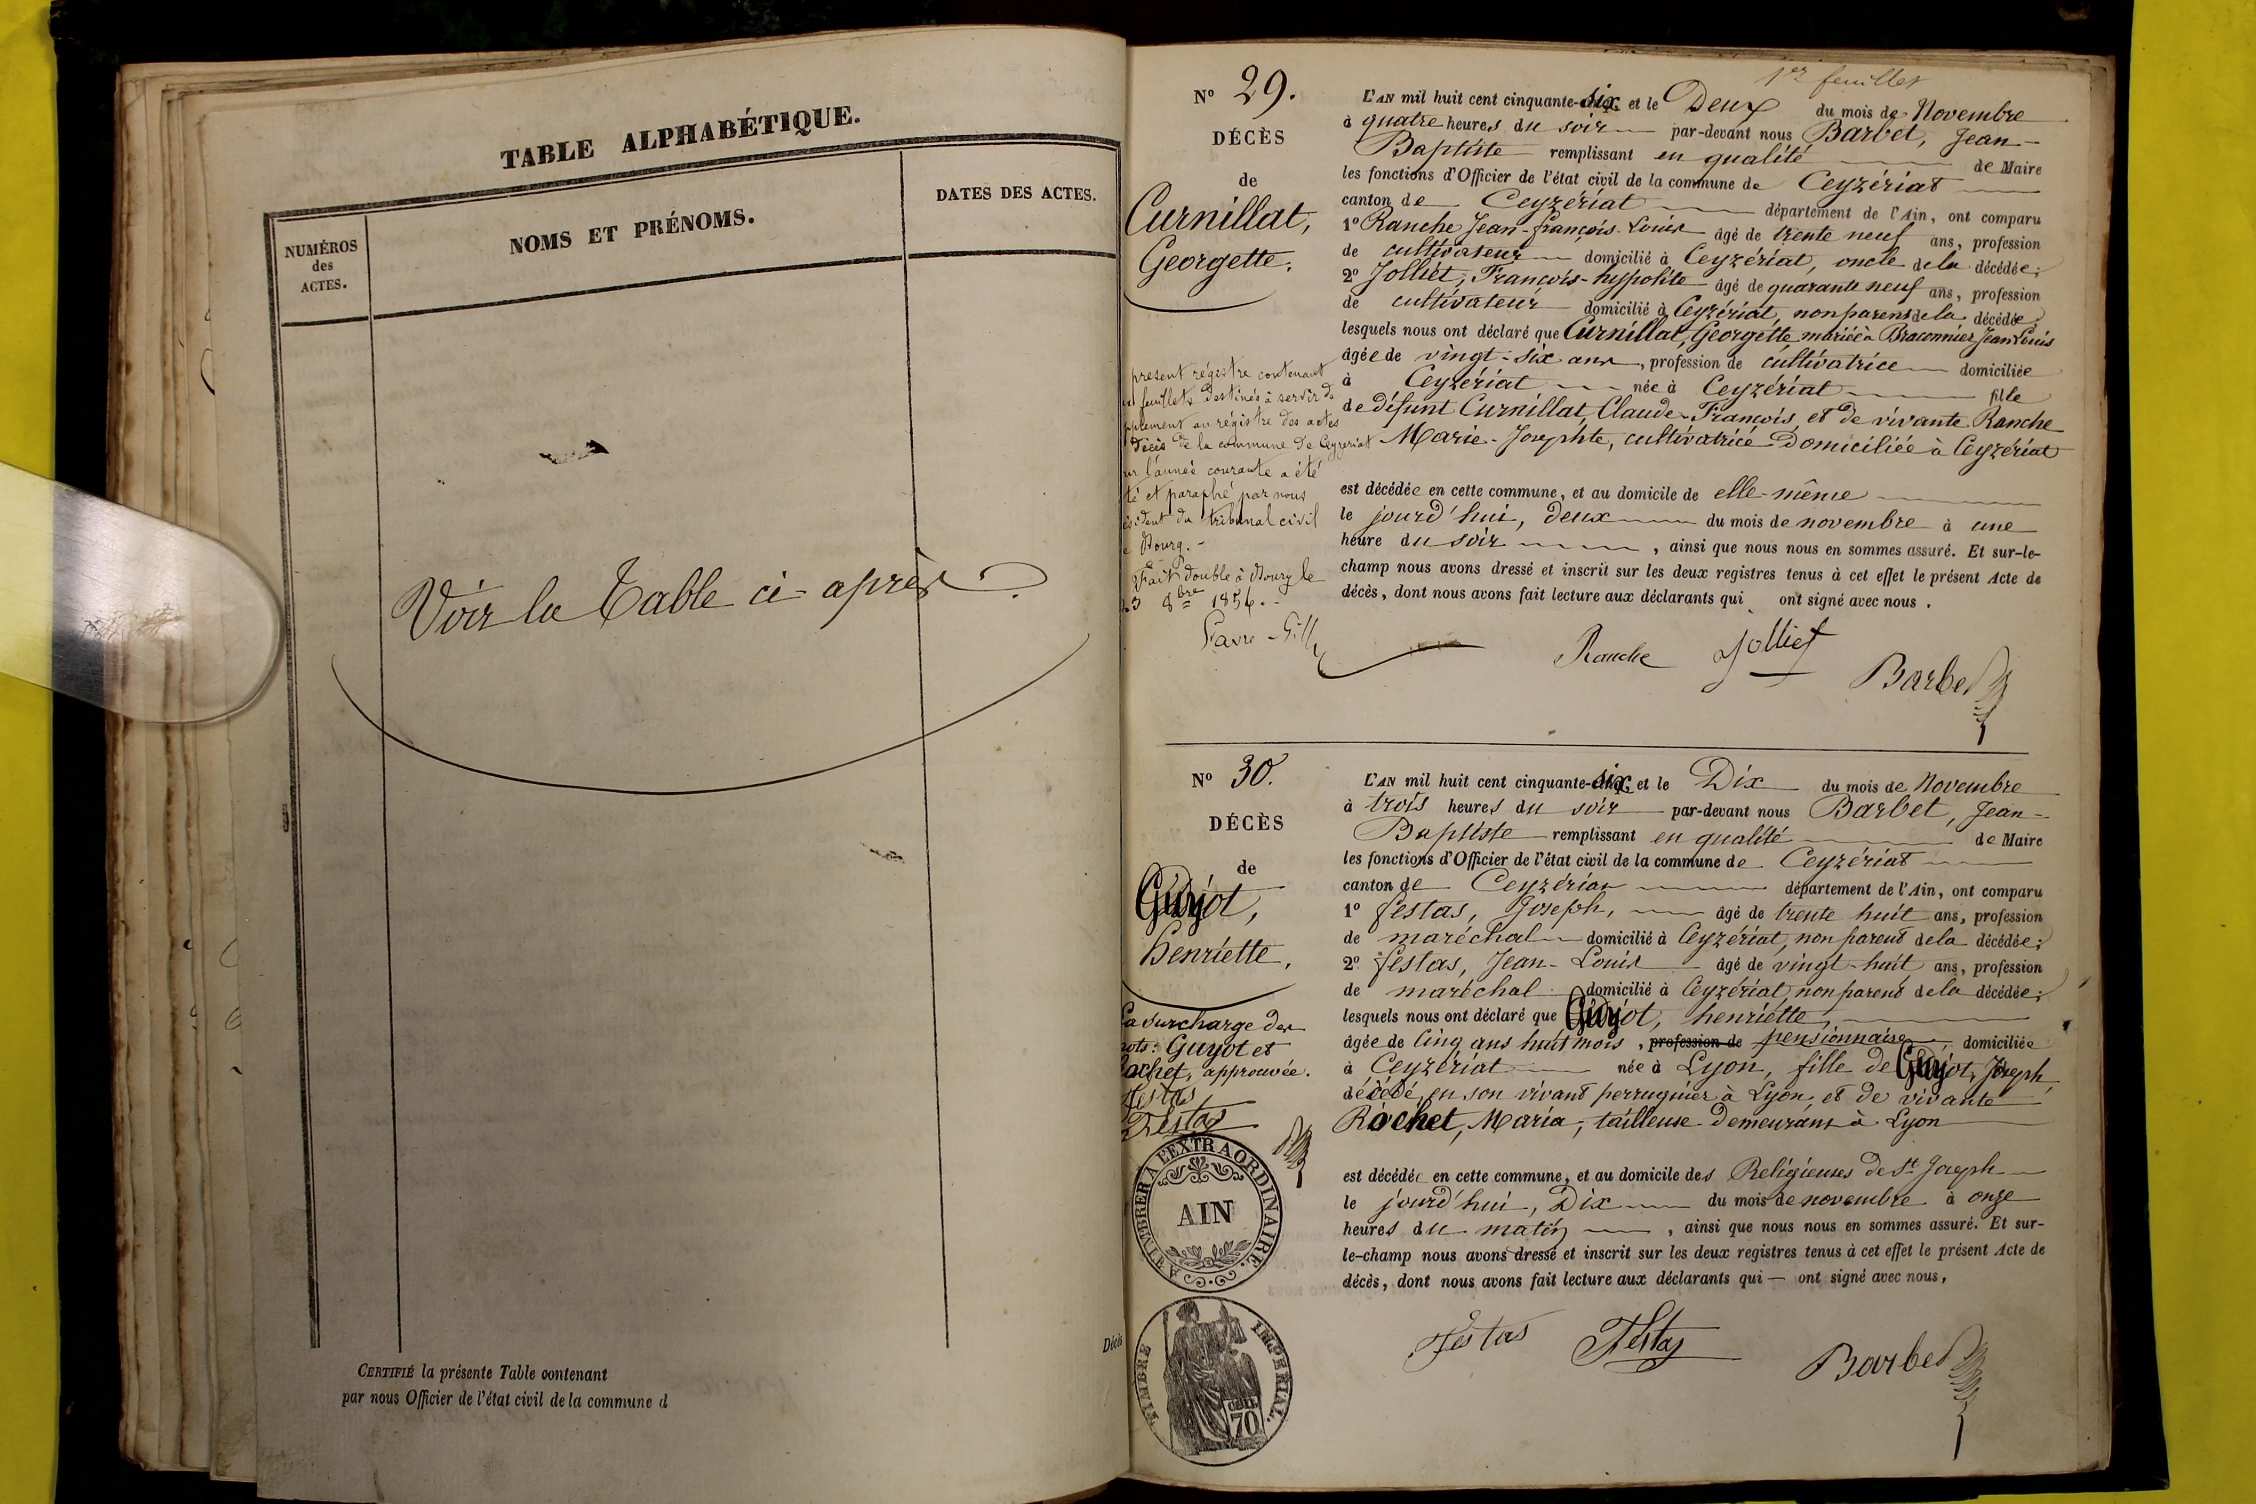 TABLE ALPHABÉTIQUE.
NUMÉROS
des
ACTES.
NOMS ET PRÉNOMS.
DATES DES ACTES.
Voir la Table ci-après
CERTIFIÉ la présente Table contenant
par nous Officier de l'état civil de la commune d
Décès
1er feuillet
N° 29.
DÉCÈS
de
Curnillat,
Georgette.
present régistre contenant
feuillets destinés à servir de
plement au régistre des actes
Décès de la commune de Ceyzeriat
l'année courante a été
té et paraphé par nous
ésident du tribunal civil
Bourg.-
Fait double à Bourg le
23 8bre 1856.-
L'AN mil huit cent cinquante-six et le Deux du mois de Novembre
à quatre heures du soir par-devant nous Barbet, Jean-
Baptiste remplissant en qualité de Maire
les fonctions d'Officier de l'état civil de la commune de Ceyzériat
canton de Ceyzériat département de l'Ain, ont comparu
1° Ranche Jean-françois-Louis âgé de trente neuf ans, profession
de cultivateur domicilié à Ceyzériat, oncle de la décédée;
2° Jolliet, François-hyppolite âgé de quarante neuf ans, profession
de cultivateur domicilié à Ceyzériat, non parens de la décédée;
lesquels nous ont déclaré que Curnillat, Georgette mariée à Braconnier Jean Louis
âgée de vingt-six ans, profession de cultivatrice domiciliée
à Ceyzériat née à Ceyzériat fille
de défunt Curnillat, Claude-François, et de vivante Ranche
Marie-Josephte, cultivatrice domiciliée à Ceyzériat
est décédée en cette commune, et au domicile de elle-même
le jourd'hui, deux du mois de novembre à une
heure du soir, ainsi que nous nous en sommes assuré. Et sur-le-
champ nous avons dressé et inscrit sur les deux registres tenus à cet effet le présent Acte de
décès, dont nous avons fait lecture aux déclarants qui ont signé avec nous.
Ranche Jolliet
Barbet
N° 30.
DÉCÈS
de
Guyot,
henriette,
La surcharge des
mots: Guyot et
Rochet, approuvée.
Festas
Festas
A TIMBRER A L'EXTRAORDINAIRE
AIN
TIMBRE IMPÉRIAL
CENT.
70
L'AN mil huit cent cinquante-six et le Dix du mois de Novembre
à trois heures du soir par-devant nous Barbet, Jean-
Baptiste remplissant en qualité de Maire
les fonctions d'Officier de l'état civil de la commune de Ceyzériat
canton de Ceyzériat département de l'Ain, ont comparu
1° festas, Joseph, âgé de trente huit ans, profession
de maréchal domicilié à Ceyzériat, non parent de la décédée;
2° festas, Jean-Louis âgé de vingt-huit ans, profession
de maréchal domicilié à Ceyzériat, non parent de la décédée;
lesquels nous ont déclaré que Guyot, henriette,
âgée de cinq ans huit mois, profession de pensionnaise domiciliée
à Ceyzériat née à Lyon, fille de Guyot, Joseph
décédé, en son vivant perruquier à Lyon, et de vivante
Rochet, Maria, tailleuse demeurant à Lyon
est décédée en cette commune, et au domicile des Religieuses de St Joseph
le jourd'hui, Dix du mois de novembre à onze
heures du matin, ainsi que nous nous en sommes assuré. Et sur-
le-champ nous avons dressé et inscrit sur les deux registres tenus à cet effet le présent Acte de
décès, dont nous avons fait lecture aux déclarants qui — ont signé avec nous,
Festas Festas
Barbet